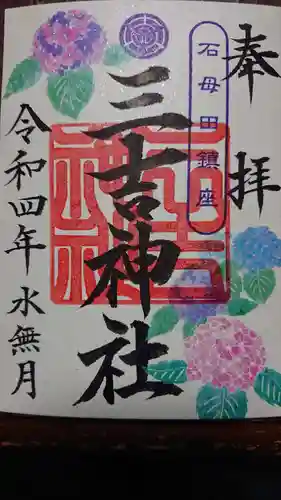 奉拝
石母田鎮座
三吉神社
令和四年水無月